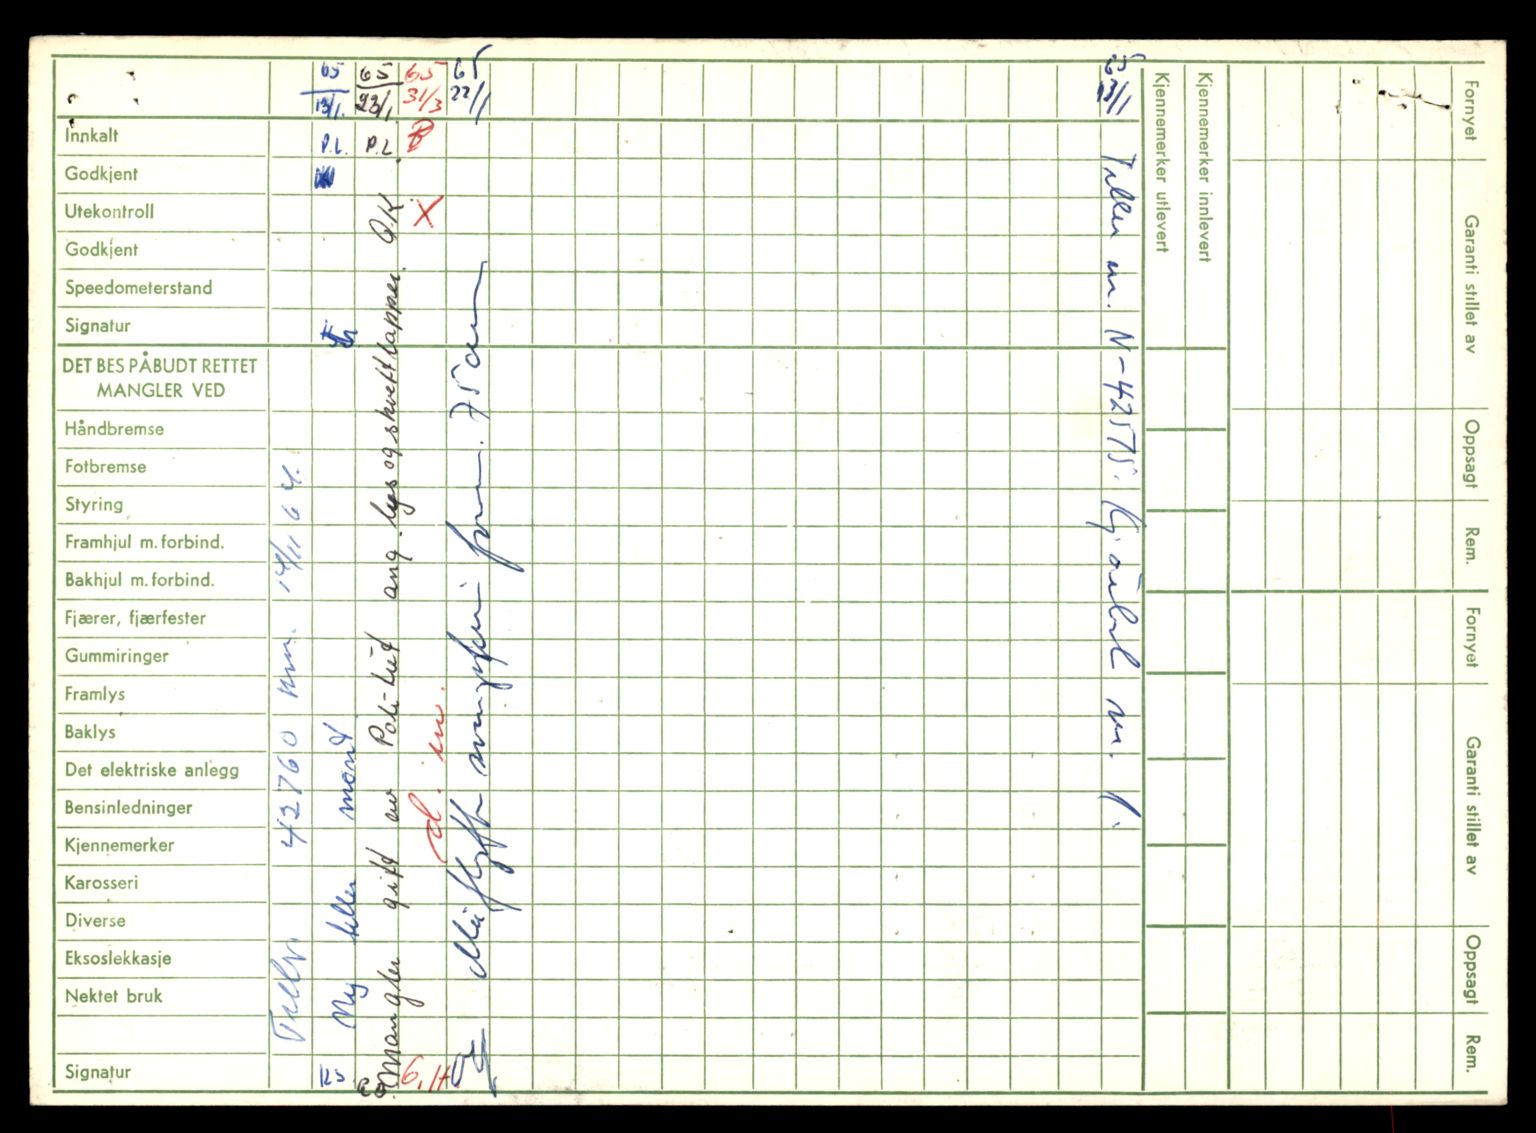 Innkalt
Godkjent
Utekontroll
Godkjent
Speedometerstand
Signatur
DET BES PÅBUDT RETTET
MANGLER VED
Håndbremse
Fotbremse
Styring
Framhjul m. forbind.
Bakhjul m. forbind.
Fjærer, fjærfester
Gummiringer
Framlys
Baklys
Det elektriske anlegg
Bensinledninger
Kjennemerker
Karosseri
Diverse
Eksoslekkasje
Nektet bruk
Signatur
42760 14/11 64.
65 13/1. P.L.
Ny teller mont
65 23/1 P.L.
Mangler gitt av Politiet ang. lys og skvettlapper. OK.
65 31/3
X
65 22/1
63 13/1 Teller nr. N-42575.
Kjennemerker utlevert
Kjennemerker innlevert
Fornyet
Garanti stillet av
Oppsagt
Rem.
Fornyet
Garanti stillet av
Oppsagt
Rem.